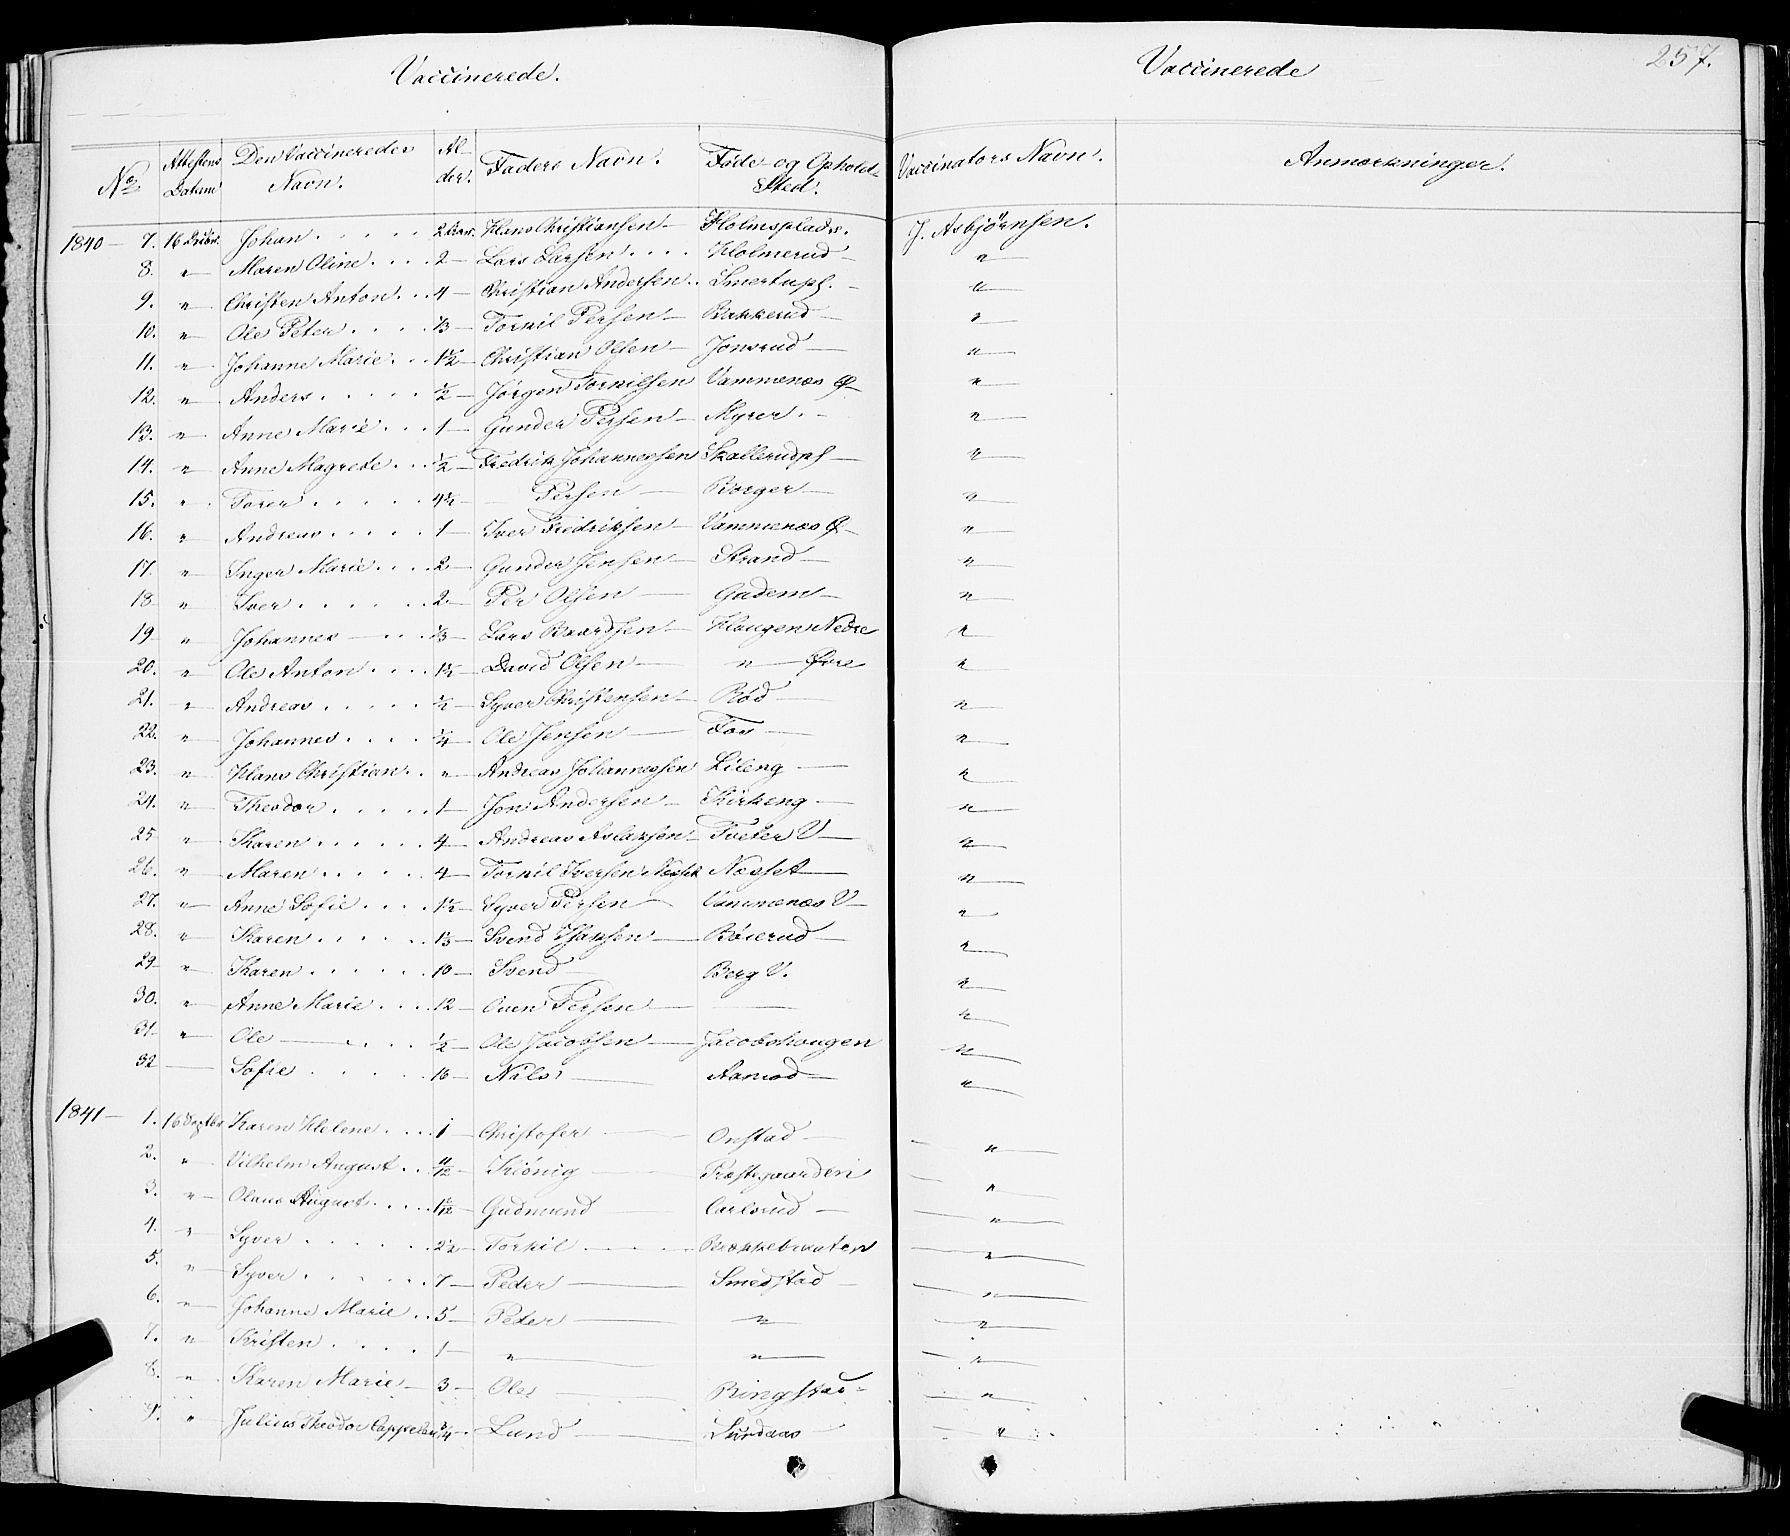 Vaccinerede.
Vaccinerede
257.
No Attestens Datum Den Vaccineredes Navn. Al-der. Faders Navn. Føde- og Ophold-Sted. Vaccinators Navn. Anmærkninger.
1840 — 7. 16 Johan . . . . . 2 Hans Christiansen — Holmsplads. J. Asbjørnsen.
8. " Maren Oline . . . . 2 — Lars Larsen . . . . Holmerud — "
9. " Christen Anton . . . 4 — Christian Andersen . . Smertupl. — "
10. " Ole Peter . . . . ⅓ — Torkil Persen — Bakkerud — "
11. " Johanne Marie . . . 1½ — Christian Olsen — Jonsrud — "
12. " Anders . . . . . ½ — Jørgen Torkilsen Vammenæs Ø — "
13. " Anne Marie . . . 1 — Gunder Persen — Myrer . — "
14. " Anne Magrede . . . ½ — Fredrik Johannessen Skallerudpl — "
15. " Torer . . . . . 4½ — Persen — Borger — "
16. " Andreas . . . . . 1 — Iver Fredriksen — Vammenæs Ø — "
17. " Inger Marie . . . . 2 — Gunder Jensen — Strand — "
18 " Iver . . . . . . 2 — Per Olsen — Gudem — "
19 " Johannes — . . . ⅓ — Lars Baardsen — Haugen Nedre "
20. " Ole Anton . . . . 1½ — David Olsen — " — Øvre "
21. " Andreas . . . . . ½ — Syver Christensen — Rød — "
22. " Johannes . . . . ¼ — Ole Jensen — Fos — "
23. " Hans Christian . . " — Andreas Johannessen Lileng — "
24. " Theodor . . . . . 1 — Jon Andersen — Kirkeng — "
25 " Karen . . . . . . 4 — Andreas Aslaksen — Tveter V — "
26. " Maren . . . . . . 4 — Torkil Iversen Næsset — "
27. " Anne Sofie . . . . 1½ — Syver Persen — Vammenæs V — "
28. " Karen . . . . . 1⅓ — Svend — Bøierud — "
29 " Karen . . . . . . 10 — Svend — Berg V. "
30. " Anne Marie . . . . 12 — Oven Persen — — "
31 " Ole — . . . ½ — Ole Jacobsen — Jacobshaugen "
32 — Sofie . . . . . 16 — Nils — Aamod — "
1841 — 1. 16 Septbr Karen Helene . . . . 1 — Christofer — Onstad — "
2. " Vilhelm August . . 11/12 — Kiönig — Præstegaarden "
3. " Olaus August . . . . 1 — Gudmund — Carlsrud — "
4. " Syver . . . . . . 2½ — Torkil — Brækkebraaten "
5. " Syver . . . . . . 7 — Peder — Smedstad — "
6. " Johanne Marie . . 5 — Peder — " "
7. " Kristen . . . . . 1 — " — " "
8. " Karen Marie — 3 — Ole — Ringstad — "
9. " Julius Theodor Cappelen ¾ — Lund — Sundaas "